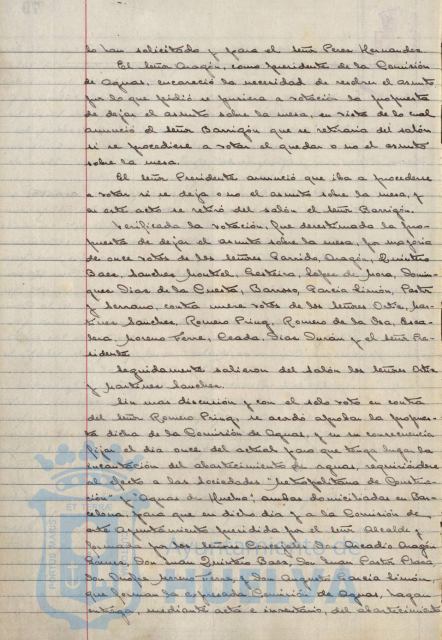 lo han solicitado y para el Señor Perez Hernandez.
El Señor Aragón, como presidente de la Comisión
de Aguas, encareció la necesidad de resolver el asunto
por lo que pidió se pusiera a votación la propuesta
de dejar el asunto sobre la mesa, en vista de lo cual
anunció el Señor Barrigón que se retiraria del salón
si se procediese a votar el quedar o no el asunto
sobre la mesa.
El Señor Presidente anunció que iba a procederse
a votar si se deja o no el asunto sobre la mesa, y
en este acto se retiró del salón el Señor Barrigón.
Verificada la votación, fue desestimada la pro-
puesta de dejar el asunto sobre la mesa, por mayoria
de once votos de los Señores Garrido, Aragón, Quintero
Baez, Sanchez Lopez de Mora, Domin-
guez Diaz de la Cuesta, Barroso, Garcia Limón, Pastor
y Serrano, contra nueve votos de los Señores Ortiz, Mar-
tinez Sanchez, Romero Romero de la Isa, Esca-
lera, Moreno Ferre, Ceada, Diaz Durán y el Señor Pre-
sidente
Seguidamente salieron del salón los Señores Ortiz
y Martinez Sanchez.
Sin mas discusión y con el solo voto en contra
del Señor Romero se acordó aprobar la propues-
ta dicha de la Comisión de Aguas, y en su consecuencia
fijar el dia once del actual para que tenga lugar la
incautación del abastecimiento de aguas, requiriéndose
al efecto a las Sociedades "Metropolitana de Construc-
ción" y "Aguas de Huelva", ambas domiciliadas en Bar-
celona, para que en dicho dia y a la Comisión de
este Ayuntamiento presidida por el Señor Alcalde y
formada por los Señores Concejales Don Arcadio Aragón
Gomez, Don Juan Quintero Baez, Don Pastor
Don Moreno Ferre, y Don Augusto Garcia Limón,
que forman la expresada Comisión de Aguas, hagan
entrega, mediante acta e inventario, del abastecimiento
Ayuntamiento de
HUELVA